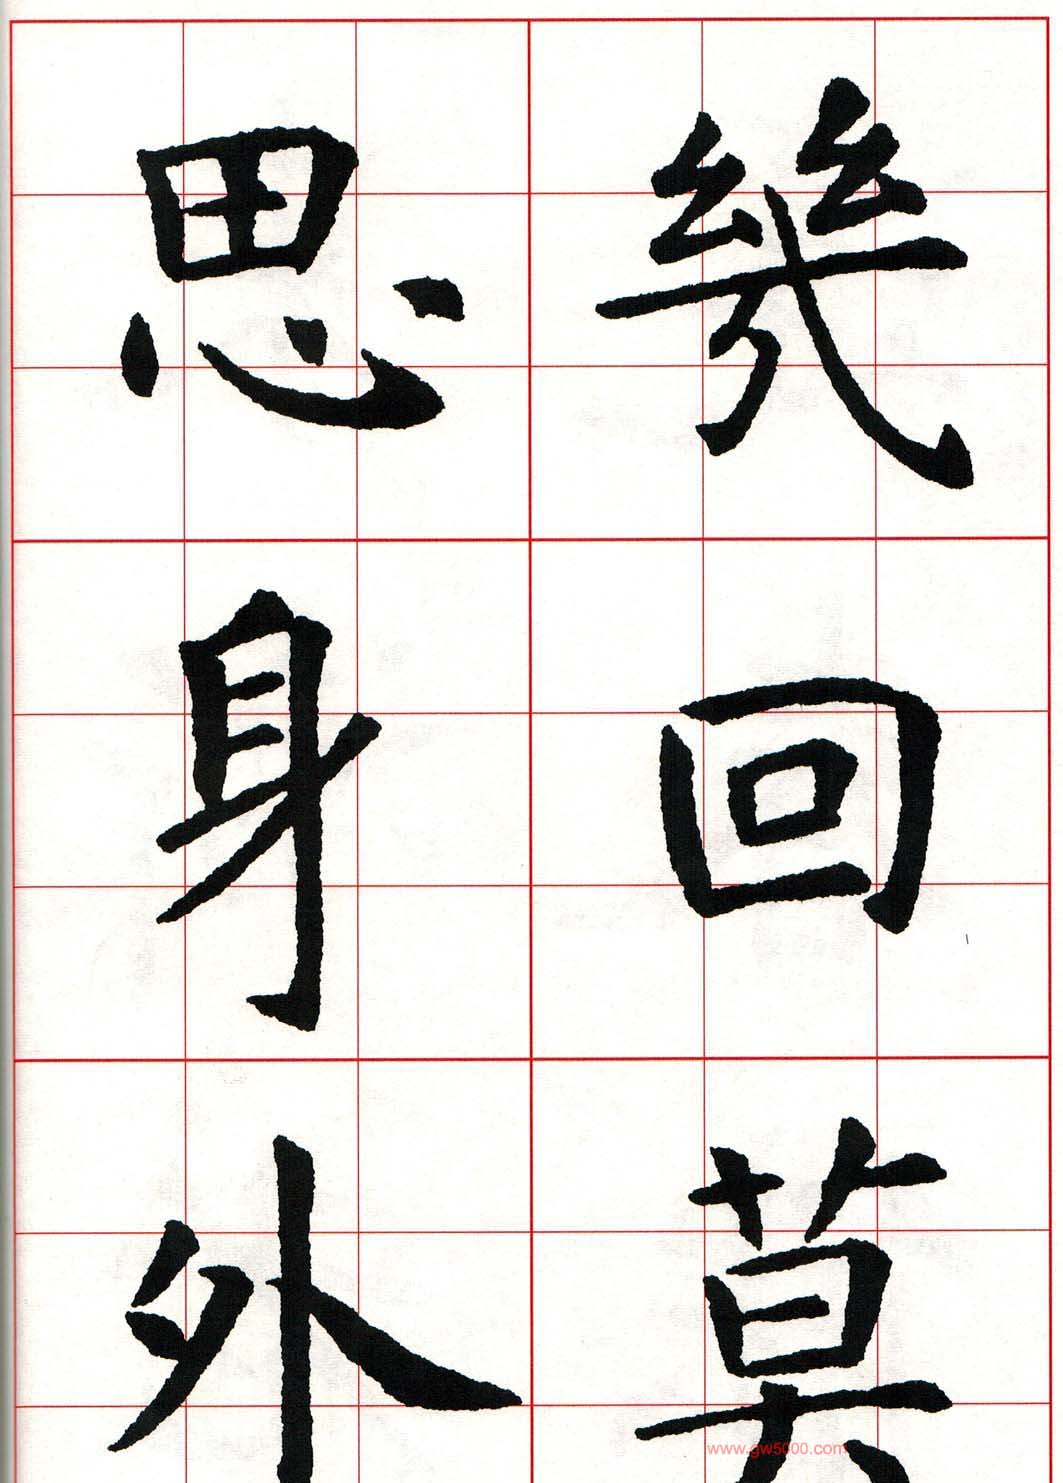 幾回莫
思身外
www.gw5000.com